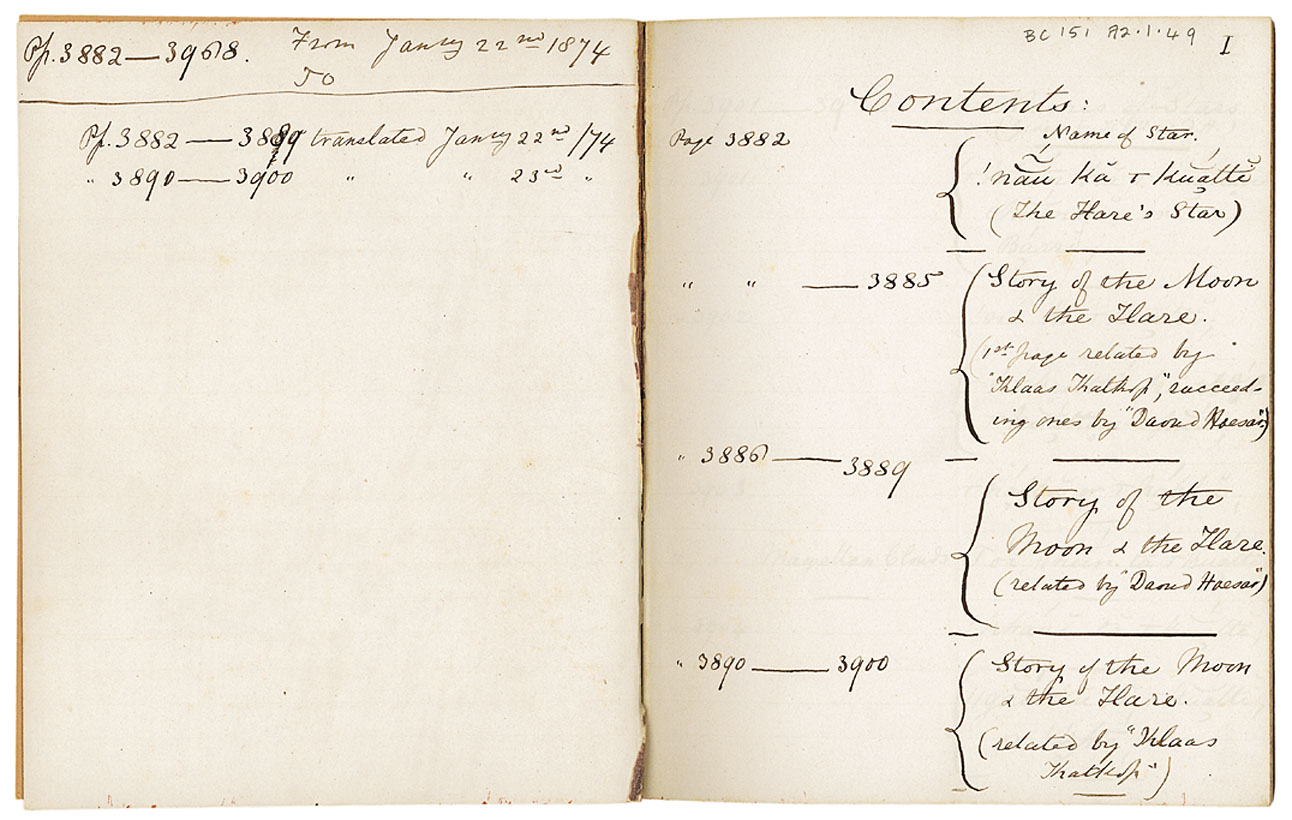 Pp. 3882—3968. From Janry 22nd 1874
To
Pp. 3882 — 3889 translated Janry 22nd /74
" 3890 — 3900 " " 23rd "
BC 151 A2.1.49
I
Contents:
Page 3882
Name of Star.
(The Hare's Star)
" " — 3885
Story of the Moon
& the Hare.
(1st page related by
"Klaas Katkop", succeed-
ing ones by "Daoud Hoesar")
" 3886 — 3889
Story of the
Moon & the Hare.
(related by "Daoud Hoesar")
" 3890 — 3900
Story of the Moon
& the Hare.
(related by "Klaas
Katkop")